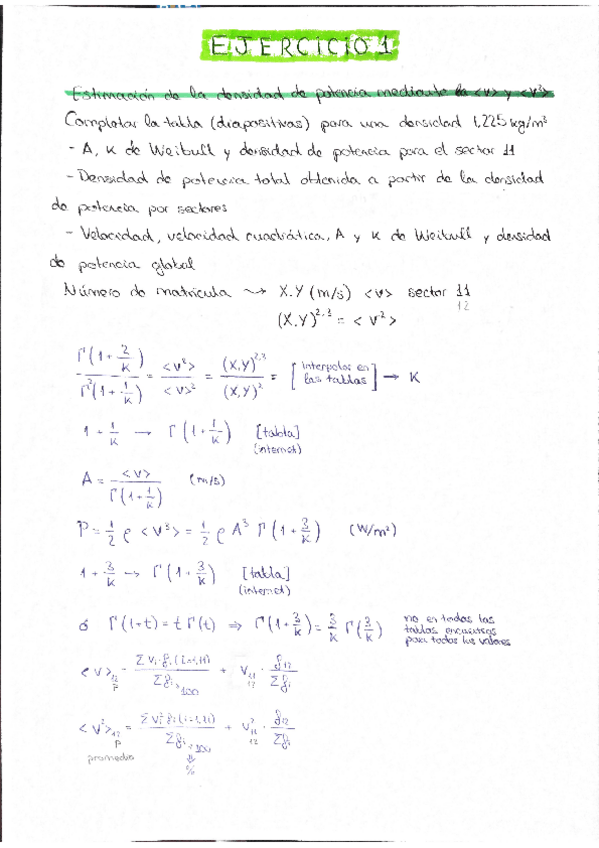 EJERCICIO 1
Estimación de la densidad de potencia mediante la <v> y <v³>
Completar la tabla (diapositivas) para una densidad 1,225 kg/m³
- A, K de Weibull y densidad de potencia para el sector 11
- Densidad de potencia total obtenida a partir de la densidad
de potencia por sectores
- Velocidad, velocidad cuadrática, A y K de Weibull y densidad
de potencia global
Número de matrícula ⇝ X.Y (m/s) <v> sector 11
12
(X.Y)^2,3 = <v²>
Γ(1+2/K) / Γ²(1+1/K) = <v²>/<v>² = (X.Y)^2,3/(X.Y)² = [interpolar en las tablas] → K
1+1/K → Γ(1+1/K) [tabla]
(internet)
A = <v>/Γ(1+1/K) (m/s)
P = 1/2 ρ <v³> = 1/2 ρ A³ Γ(1+3/K) (W/m²)
1+3/K → Γ(1+3/K) [tabla]
(internet)
ó Γ(1+t) = t Γ(t) ⇒ Γ(1+3/K) = 3/K Γ(3/K) no en todas las
tablas encuentras
para todos los valores
<v>12 p = Σ vi·fi (i=1,11)/Σfi 100 + v11 12 · f12/Σfi
<v²>12 p = Σ vi² fi (i=1,11)/Σfi 100 + v²11 12 · f12/Σfi
promedio
%